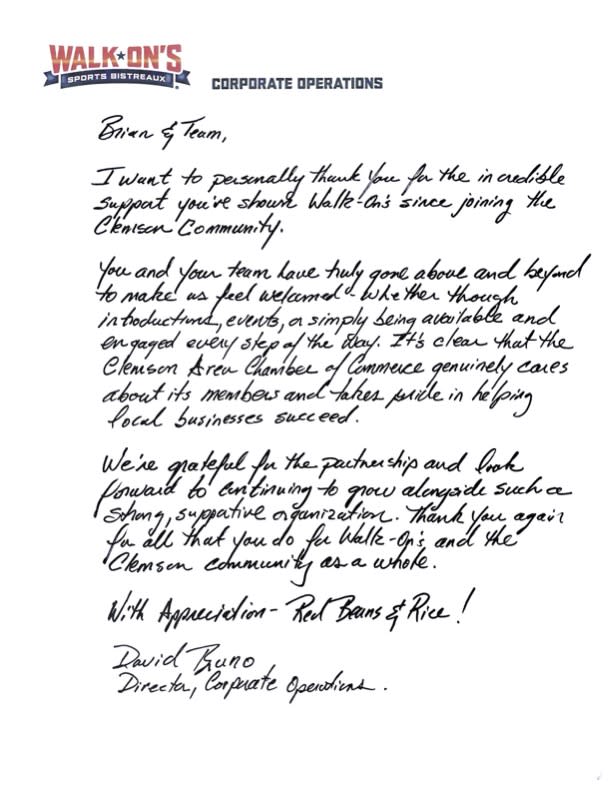 WALK★ON'S
SPORTS BISTREAUX
CORPORATE OPERATIONS
Brian & Team,
I want to personally thank you for the incredible
support you've shown Walk-On's since joining the
Clemson Community.
You and your team have truly gone above and beyond
to make us feel welcomed - whether though
introductions, events, or simply being available and
engaged every step of the way. It's clear that the
Clemson Area Chamber of Commerce genuinely cares
about its members and takes pride in helping
local businesses succeed.
We're grateful for the partnership and look
forward to continuing to grow alongside such a
strong, supportive organization. Thank you again
for all that you do for Walk-On's and the
Clemson community as a whole.
With Appreciation - Red Beans & Rice!
David Bruno
Director, Corporate Operations.